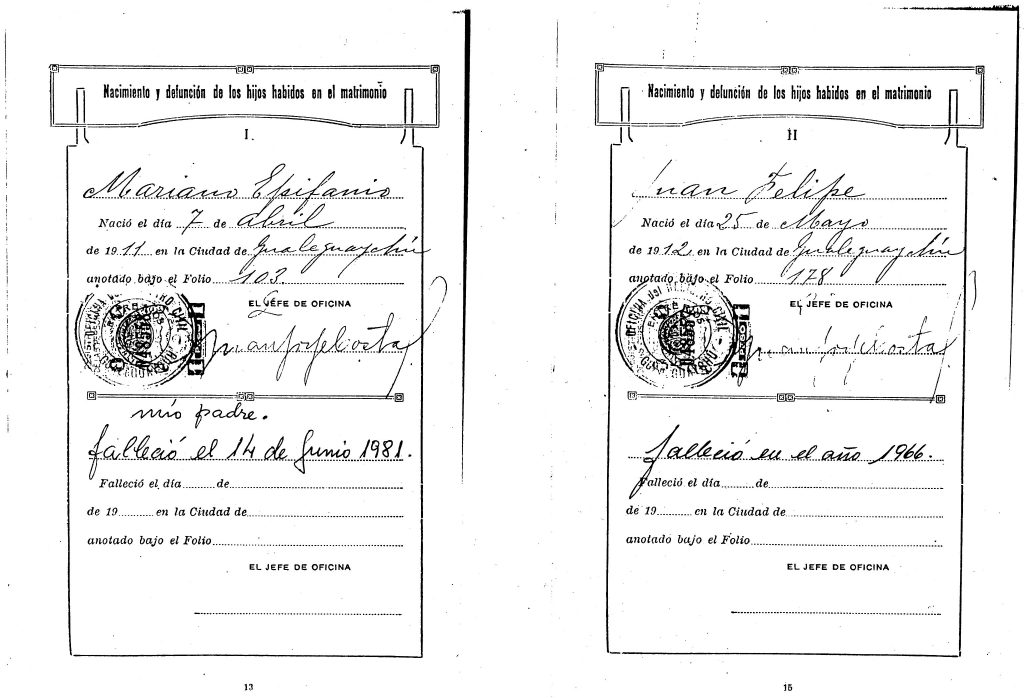 Nacimiento y defunción de los hijos habidos en el matrimonio
I.
Mariano Epifanio
Nació el día 7 de abril
de 1911 en la Ciudad de Gualeguaychú
anotado bajo el Folio 103.
EL JEFE DE OFICINA
mío padre.
falleció el 14 de Junio 1981.
Falleció el día de
de 19 en la Ciudad de
anotado bajo el Folio
EL JEFE DE OFICINA
13
Nacimiento y defunción de los hijos habidos en el matrimonio
II
Juan Felipe
Nació el día 25 de Mayo
de 1912 en la Ciudad de Gualeguaychú
anotado bajo el Folio 178
EL JEFE DE OFICINA
falleció en el año 1966.
Falleció el día de
de 19 en la Ciudad de
anotado bajo el Folio
EL JEFE DE OFICINA
15